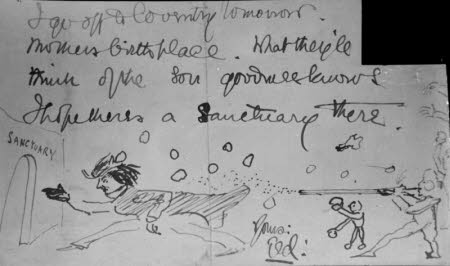 I go off to Coventry tomorrow.
Mothers birthplace. What they'll
think of the Son goodness knows
I hope theres a Sanctuary there.
SANCTUARY
Yours:
Ted: